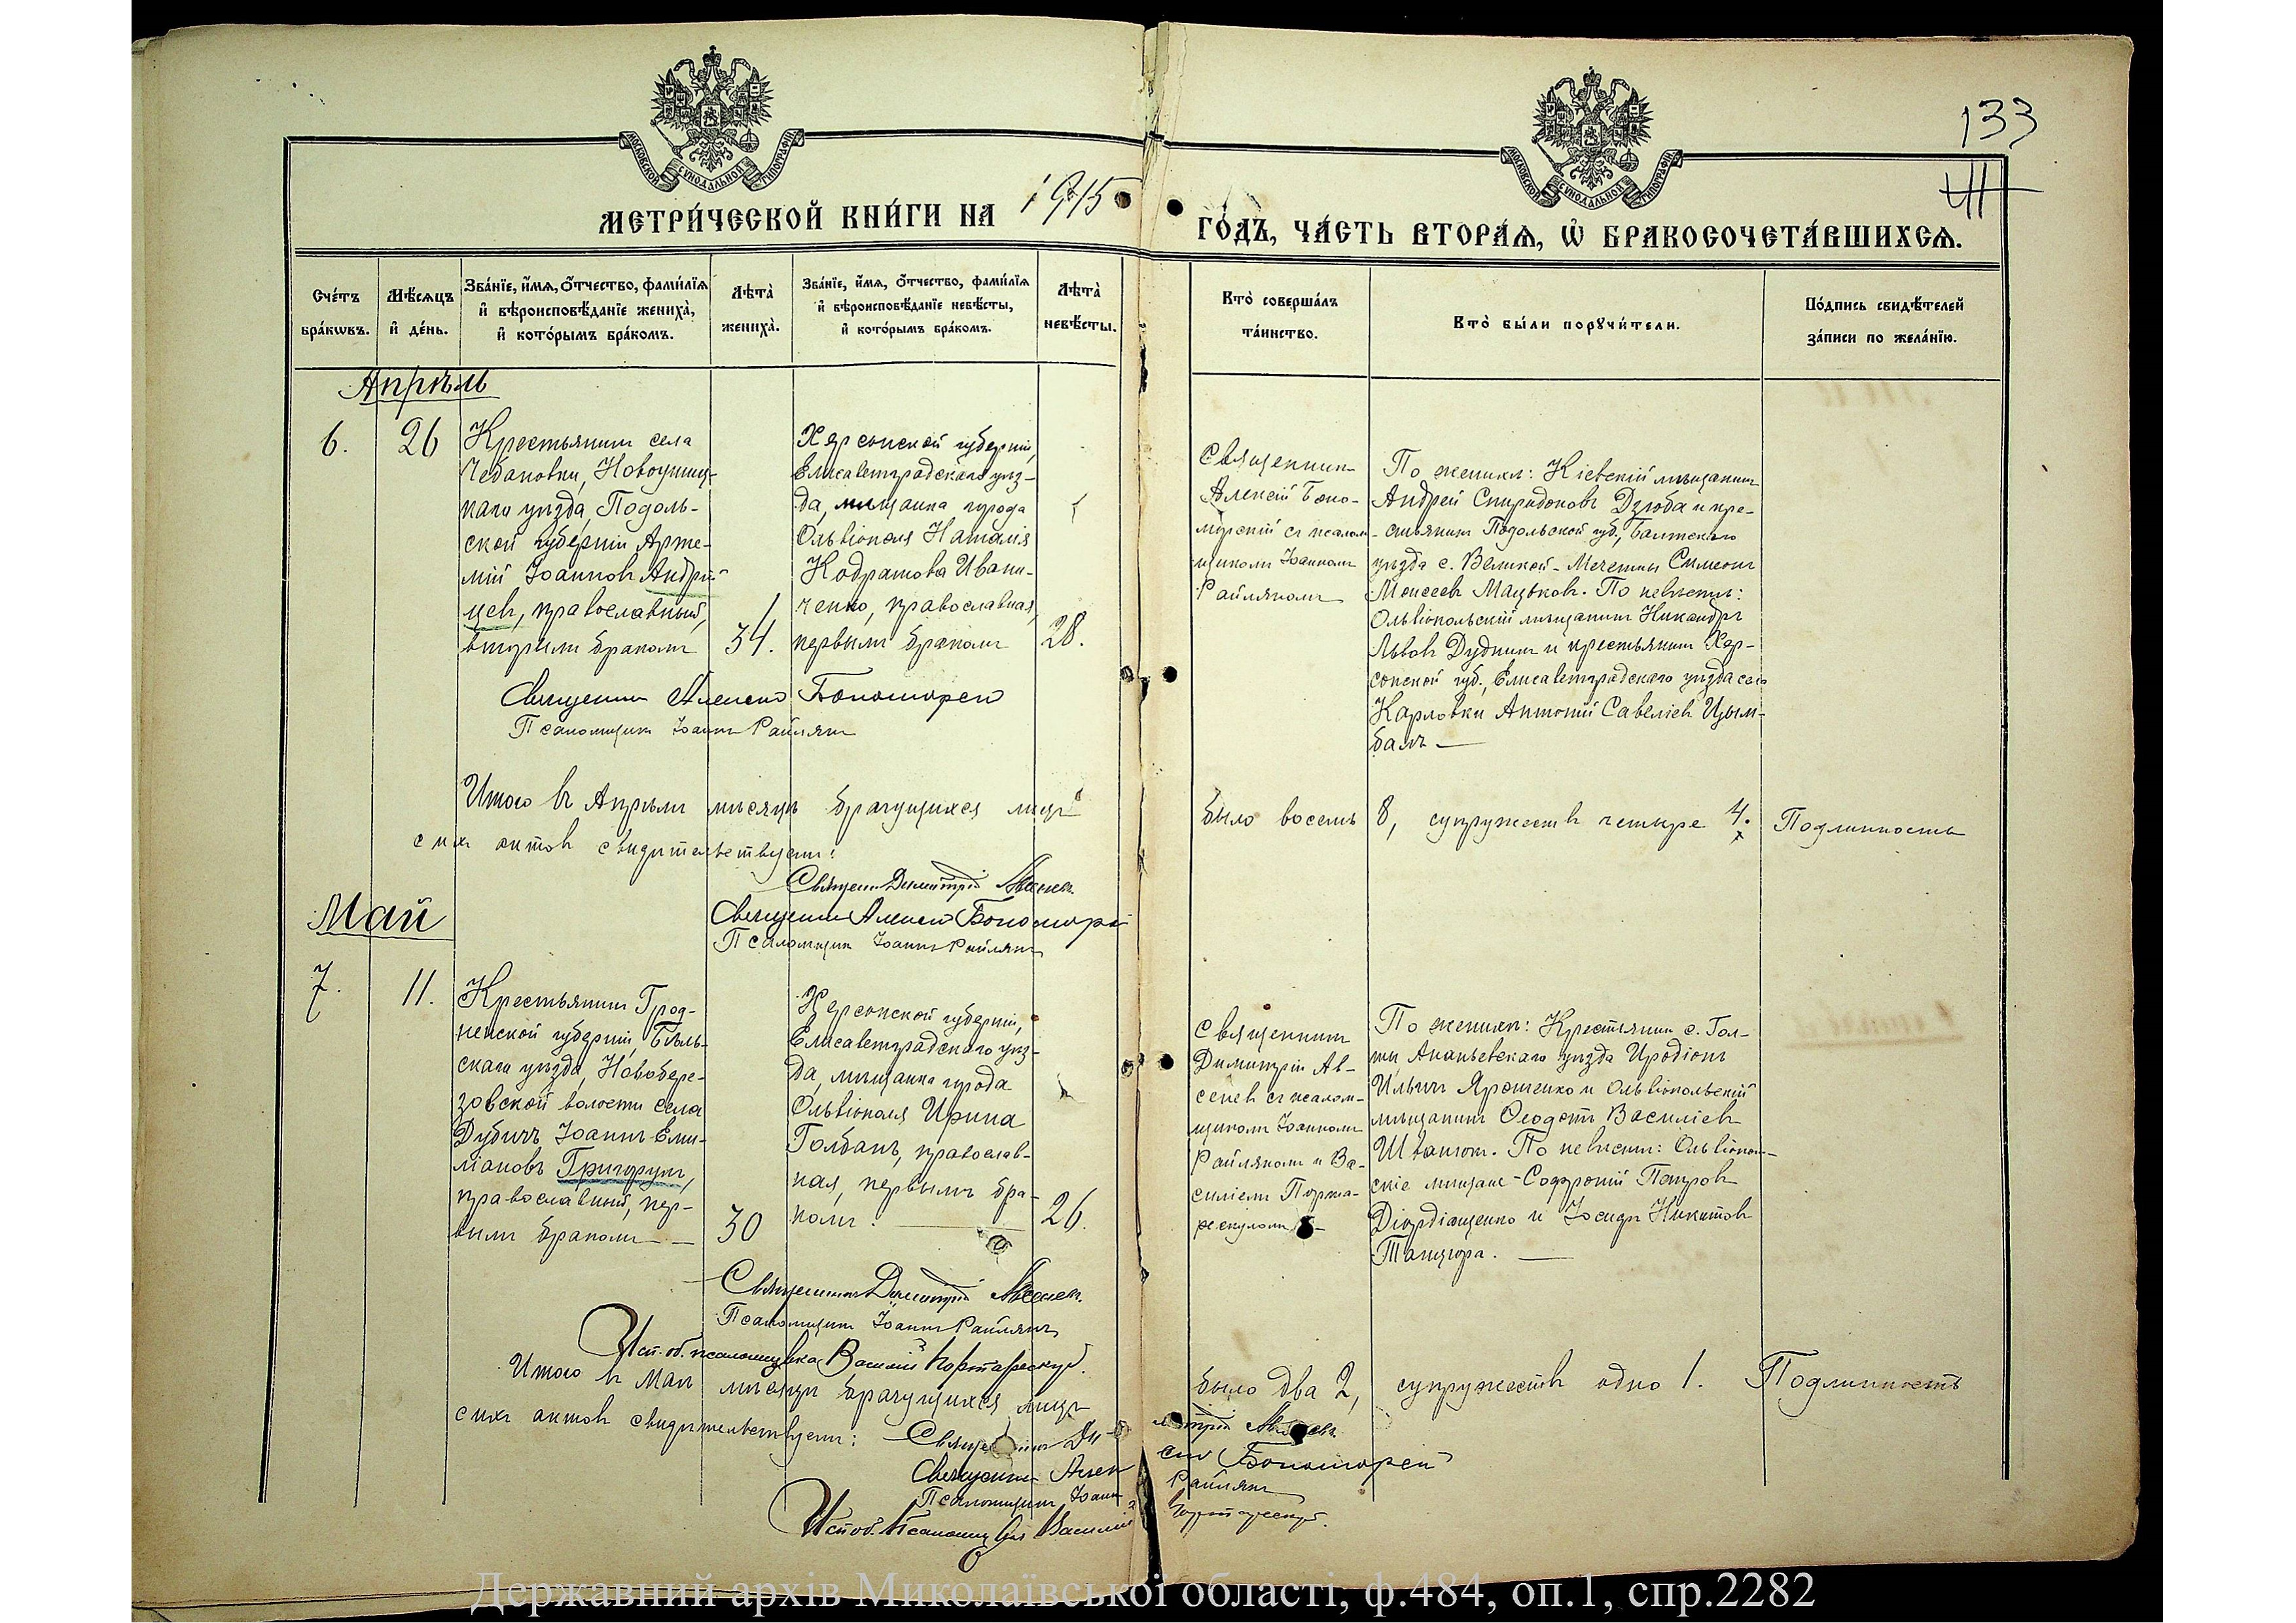 133
41
МОСКОВСКОЙ СѴНОДАЛЬНОЙ ТИПОГРАФІИ
МОСКОВСКОЙ СѴНОДАЛЬНОЙ ТИПОГРАФІИ
МЕТРИ́ЧЕСКОЙ КНИ́ГИ НА 1915
ГО́ДЪ, ЧА́СТЬ ВТОРА́Ѧ, Ѡ҆ БРАКОСОЧЕТА́ВШИХСѦ.
Сче́тъ бра́кѡвъ.
Мѣ́сѧцъ и҆ де́нь.
Зва́нїе, и҆́мѧ, ѻ҆́тчество, фами́лїѧ и҆ вѣроисповѣ́данїе жениха̀, и҆ кото́рымъ бра́комъ.
Лѣта̀ жениха̀.
Зва́нїе, и҆́мѧ, ѻ҆́тчество, фами́лїѧ и҆ вѣроисповѣ́данїе невѣ́сты, и҆ кото́рымъ бра́комъ.
Лѣта̀ невѣ́сты.
Кто̀ соверша́лъ та́инство.
Кто̀ бы́ли порꙋчи́тели.
По́дпись свидѣ́телей за́писи по жела́нїю.
Апрѣль
6.
26
Крестьянинъ села
Чебановки, Новоушиц-
каго уѣзда, Подоль-
ской губерніи Арте-
мій Іоанновъ Андрій-
цев, православный,
вторымъ бракомъ
34.
Херсонской губерніи,
Елисаветградскаго уѣз-
да, мѣщанка города
Ольвіополя Наталія
Кодратова Ивани-
ченко, православная,
первымъ бракомъ
28.
Священникъ
Алексій Боно-
морскій съ псалом-
щикомъ Іоанномъ
Райляномъ
По женихѣ: Кіевскій мѣщанинъ
Андрей Спиридоновъ Дзюба и кре-
стьянинъ Подольской губ., Балтскаго
уѣзда с. Великой-Мечетни Симеонъ
Моисеевъ Мацьковъ. По невѣстѣ:
Ольвіопольскій мѣщанинъ Никандръ
Львовъ Дудникъ и крестьянинъ Хер-
сонской губ., Елисаветградскаго уѣзда села
Карловки Антоній Савеліевъ Цым-
балъ
Священникъ Алексій
Псаломщикъ Іоаннъ Райлянъ
Итого въ Апрѣлѣ мѣсяцѣ брачущихся лицъ было восемь 8, супружествъ четыре 4. Подлинность
сихъ актовъ свидѣтельствуемъ:
Священ. Димитрій Авсенев
Священникъ Алексій
Псаломщикъ Іоаннъ Райлянъ
Май
7.
11.
Крестьянинъ Грод-
ненской губерніи, Бѣль-
скаго уѣзда, Новобере-
зовской волости села
Дубичъ Іоаннъ Еми-
ліановъ Григорукъ,
православный, пер-
вымъ бракомъ
30
Херсонской губерніи,
Елисаветградскаго уѣз-
да, мѣщанка города
Ольвіополя Ирина
Голбанъ, православ-
ная, первымъ бра-
комъ.
26.
Священникъ
Димитрій Ав-
сеневъ съ псалом-
щикомъ Іоанномъ
Райляномъ и Ва-
силіемъ Порта-
рескуломъ
По женихѣ: Крестьянинъ с. Гол-
ты Ананьевскаго уѣзда Иродіонъ
Ильинъ Ярошенко и Ольвіопольскій
мѣщанинъ Ѳеодотъ Василіевъ
По невѣстѣ: Ольвіополь-
скіе мѣщане - Софроній Петровъ
Діордіященко и Іосифъ Никитовъ
Танцюра.
Священникъ Димитрій Авсенев.
Псаломщикъ Іоаннъ Райлянъ
Исп. об. псаломщика Василій Портарескул.
Итого въ Маѣ мѣсяцѣ брачущихся лицъ было два 2, супружествъ одно 1. Подлинность
сихъ актовъ свидѣтельствуемъ: Священникъ Димитрій Авсенев
Священникъ Алексій
Псаломщикъ Іоаннъ Райлянъ
Исп. об. псаломщика Василій Портарескул.
Державний архів Миколаївської області, ф.484, оп.1, спр.2282